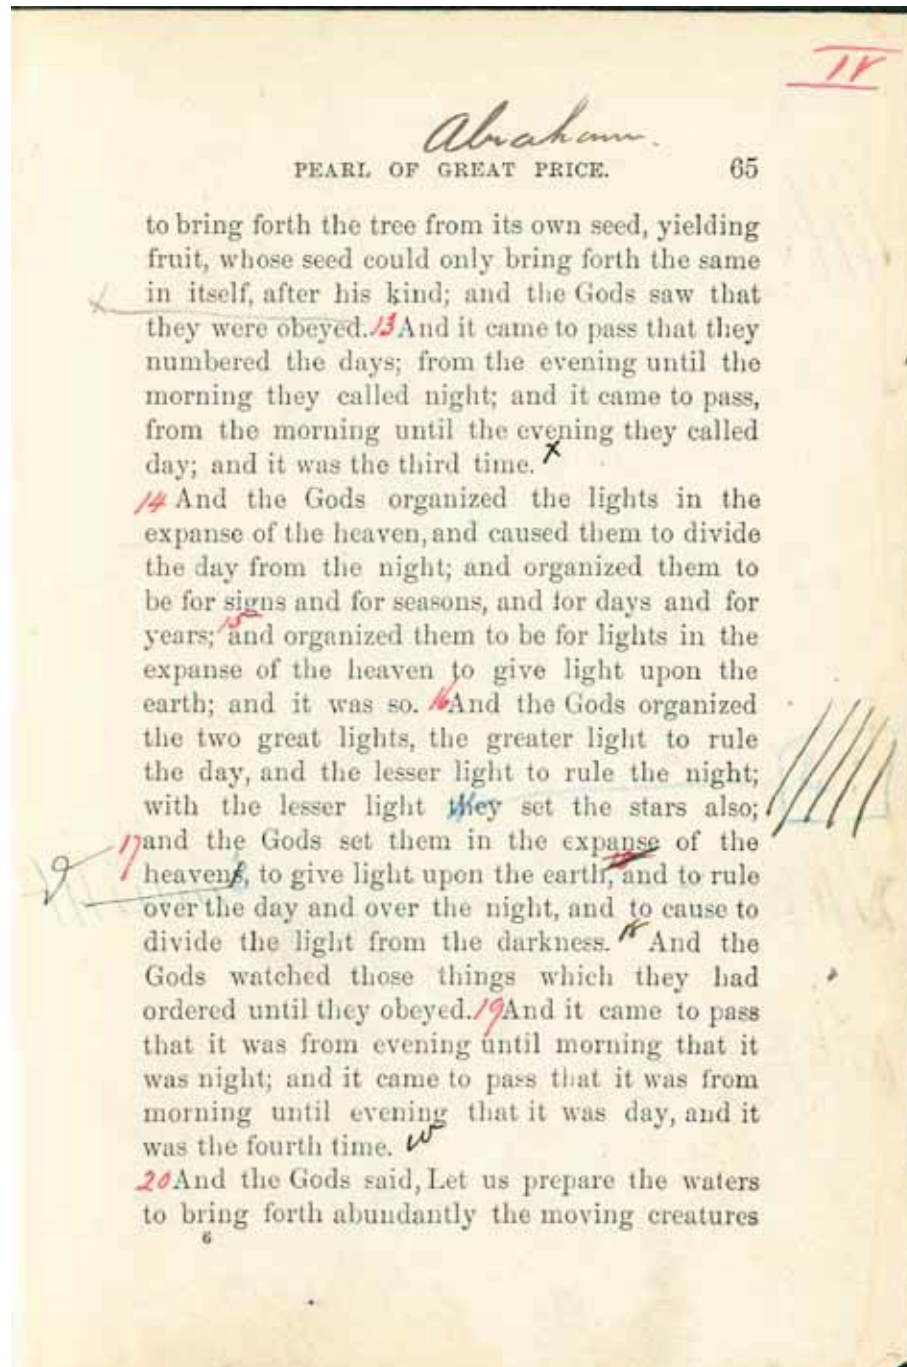 IV
Abraham.
PEARL OF GREAT PRICE. 65
to bring forth the tree from its own seed, yielding
fruit, whose seed could only bring forth the same
in itself, after his kind; and the Gods saw that
they were obeyed. 13 And it came to pass that they
numbered the days; from the evening until the
morning they called night; and it came to pass,
from the morning until the evening they called
day; and it was the third time. x
14 And the Gods organized the lights in the
expanse of the heaven, and caused them to divide
the day from the night; and organized them to
be for signs and for seasons, and for days and for
years; 15 and organized them to be for lights in the
expanse of the heaven to give light upon the
earth; and it was so. 16 And the Gods organized
the two great lights, the greater light to rule
the day, and the lesser light to rule the night;
with the lesser light they set the stars also;
17 and the Gods set them in the expanse of the
heavens, to give light upon the earth, and to rule
over the day and over the night, and to cause to
divide the light from the darkness. 18 And the
Gods watched those things which they had
ordered until they obeyed. 19 And it came to pass
that it was from evening until morning that it
was night; and it came to pass that it was from
morning until evening that it was day, and it
was the fourth time.
20 And the Gods said, Let us prepare the waters
to bring forth abundantly the moving creatures
6